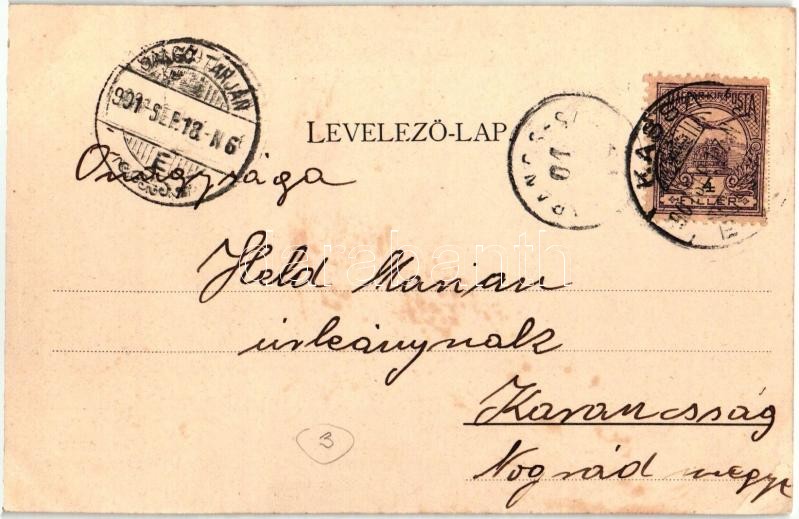 SALGÓ-TARJÁN
901 SEP. 18. N6
LEVELEZŐ-LAP
MAGYAR KIR. POSTA
KASSA
4
FILLÉR
01
Őnagysága
Held Marian
úrleánynak
Karancsság
Nográd megye
3
darabanth